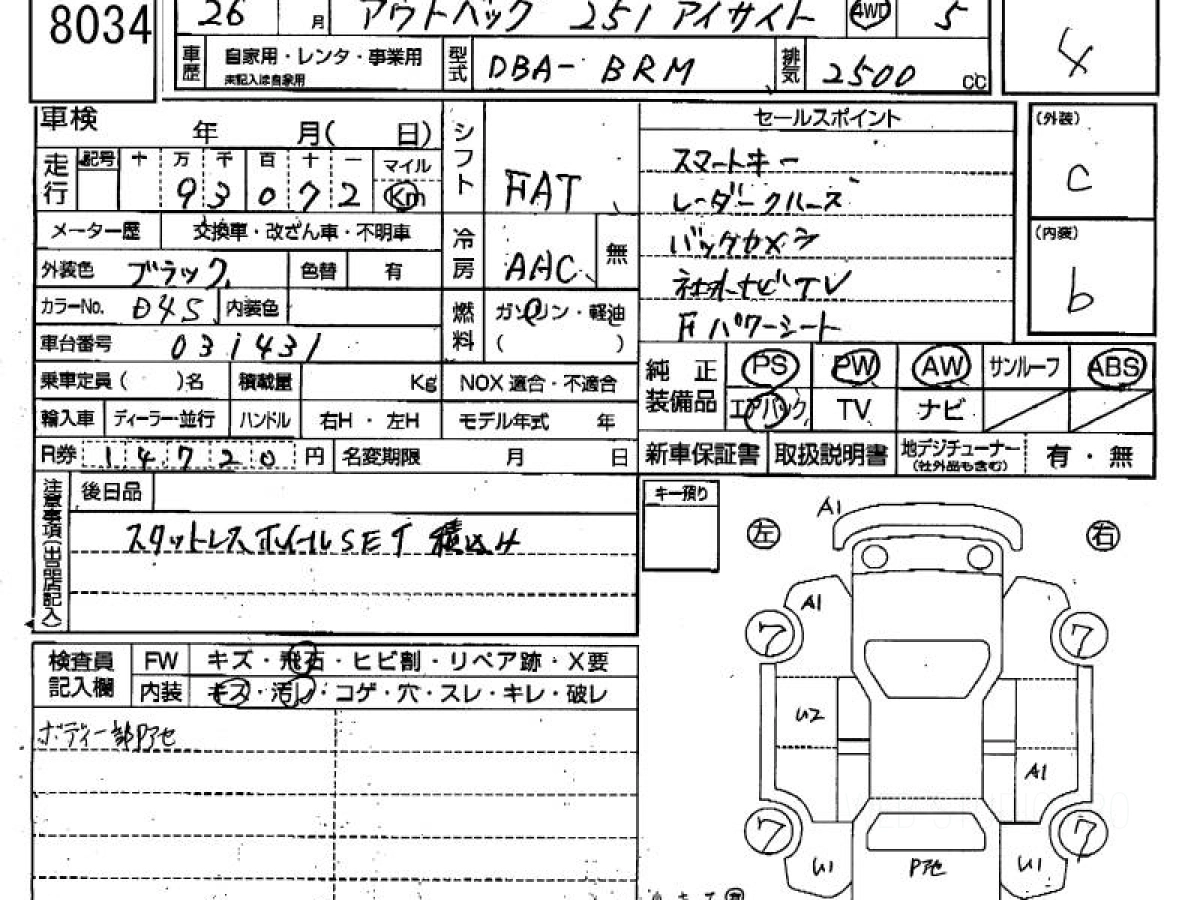 8034
26 月 アウトバック 25i アイサイト 4WD 5
4
車歴 自家用・レンタ・事業用 未記入は自家用 型式 DBA-BRM 排気 2500 cc
車検 年 月( 日) シフト FAT
走行 記号 十 万 千 百 十 一 マイル
93072 Km
メーター歴 交換車・改ざん車・不明車
冷房 AAC 無
外装色 ブラック 色替 有
カラーNo. D4S 内装色
燃料 ガソリン・軽油
( )
車台番号 031431
乗車定員( )名 積載量 Kg NOX適合・不適合
輸入車 ディーラー・並行 ハンドル 右H・左H モデル年式 年
R券 14720 円 名変期限 月 日
セールスポイント
スマートキー
レーダークルーズ
バックカメラ
社外ナビTV
Fパワーシート
(外装)
C
(内装)
b
純正装備品 PS PW AW サンルーフ ABS
エアバック TV ナビ
新車保証書 取扱説明書 地デジチューナー (社外品も含む) 有・無
注意事項(出品店記入) 後日品
スタットレスホイールSET 積込み
キー預り
検査員記入欄 FW キズ・飛石・ヒビ割・リペア跡・X要
内装 キズ・汚レ・コゲ・穴・スレ・キレ・破レ
ボディー部Pアセ
左 A1 右
A1
7 7
U2
A1
7 7
U1 Pアセ U1